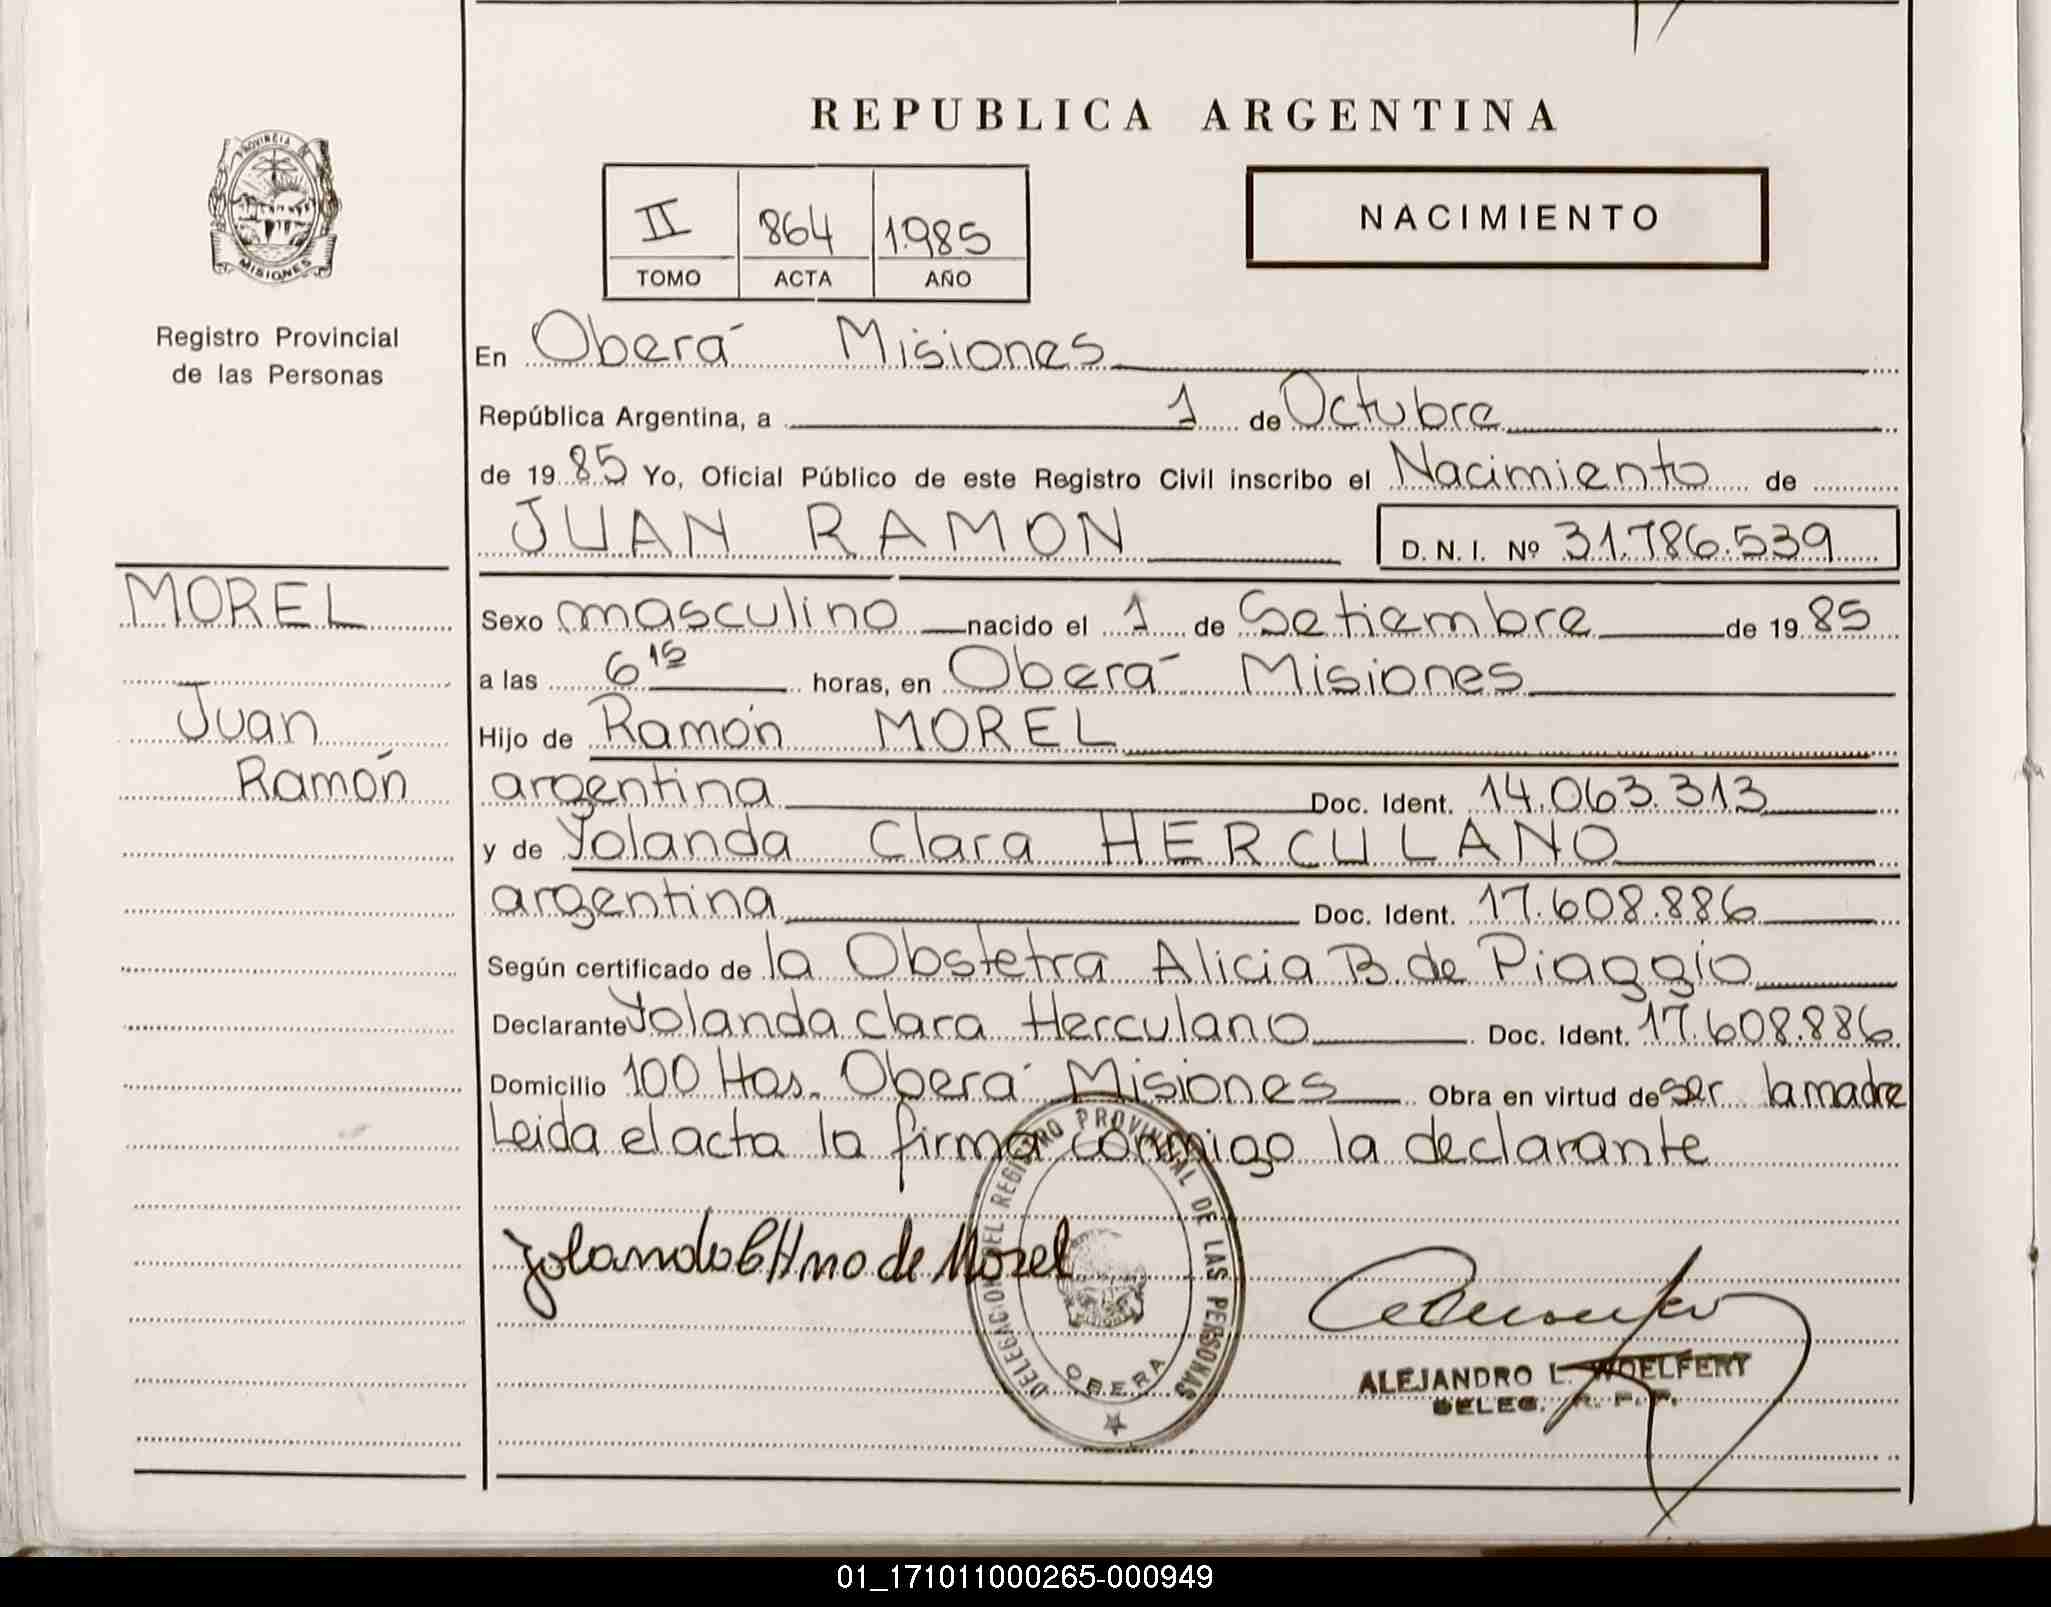 REPUBLICA ARGENTINA
PROVINCIA DE
MISIONES
Registro Provincial
de las Personas
II 864 1.985
TOMO ACTA AÑO
NACIMIENTO
En Oberá Misiones
República Argentina, a 1 de Octubre
de 19 85 Yo, Oficial Público de este Registro Civil inscribo el Nacimiento de
JUAN RAMON D. N. I. Nº 31.786.539
MOREL
Juan
Ramón
Sexo masculino nacido el 1 de Setiembre de 19 85
a las 6 15 horas, en Oberá Misiones
Hijo de Ramón MOREL
argentina Doc. Ident. 14.063.313
y de Yolanda Clara HERCULANO
argentina Doc. Ident. 17.608.886
Según certificado de la Obstetra Alicia B. de Piaggio
Declarante Yolanda Clara Herculano Doc. Ident. 17.608.886
Domicilio 100 Has. Oberá Misiones Obra en virtud de ser la madre
Leida el acta la firma conmigo la declarante
DELEGACION DEL REGISTRO PROVINCIAL DE LAS PERSONAS
OBERA
de Morel
ALEJANDRO L. WOELFERT
DELEG. R. P. P.
01_171011000265-000949